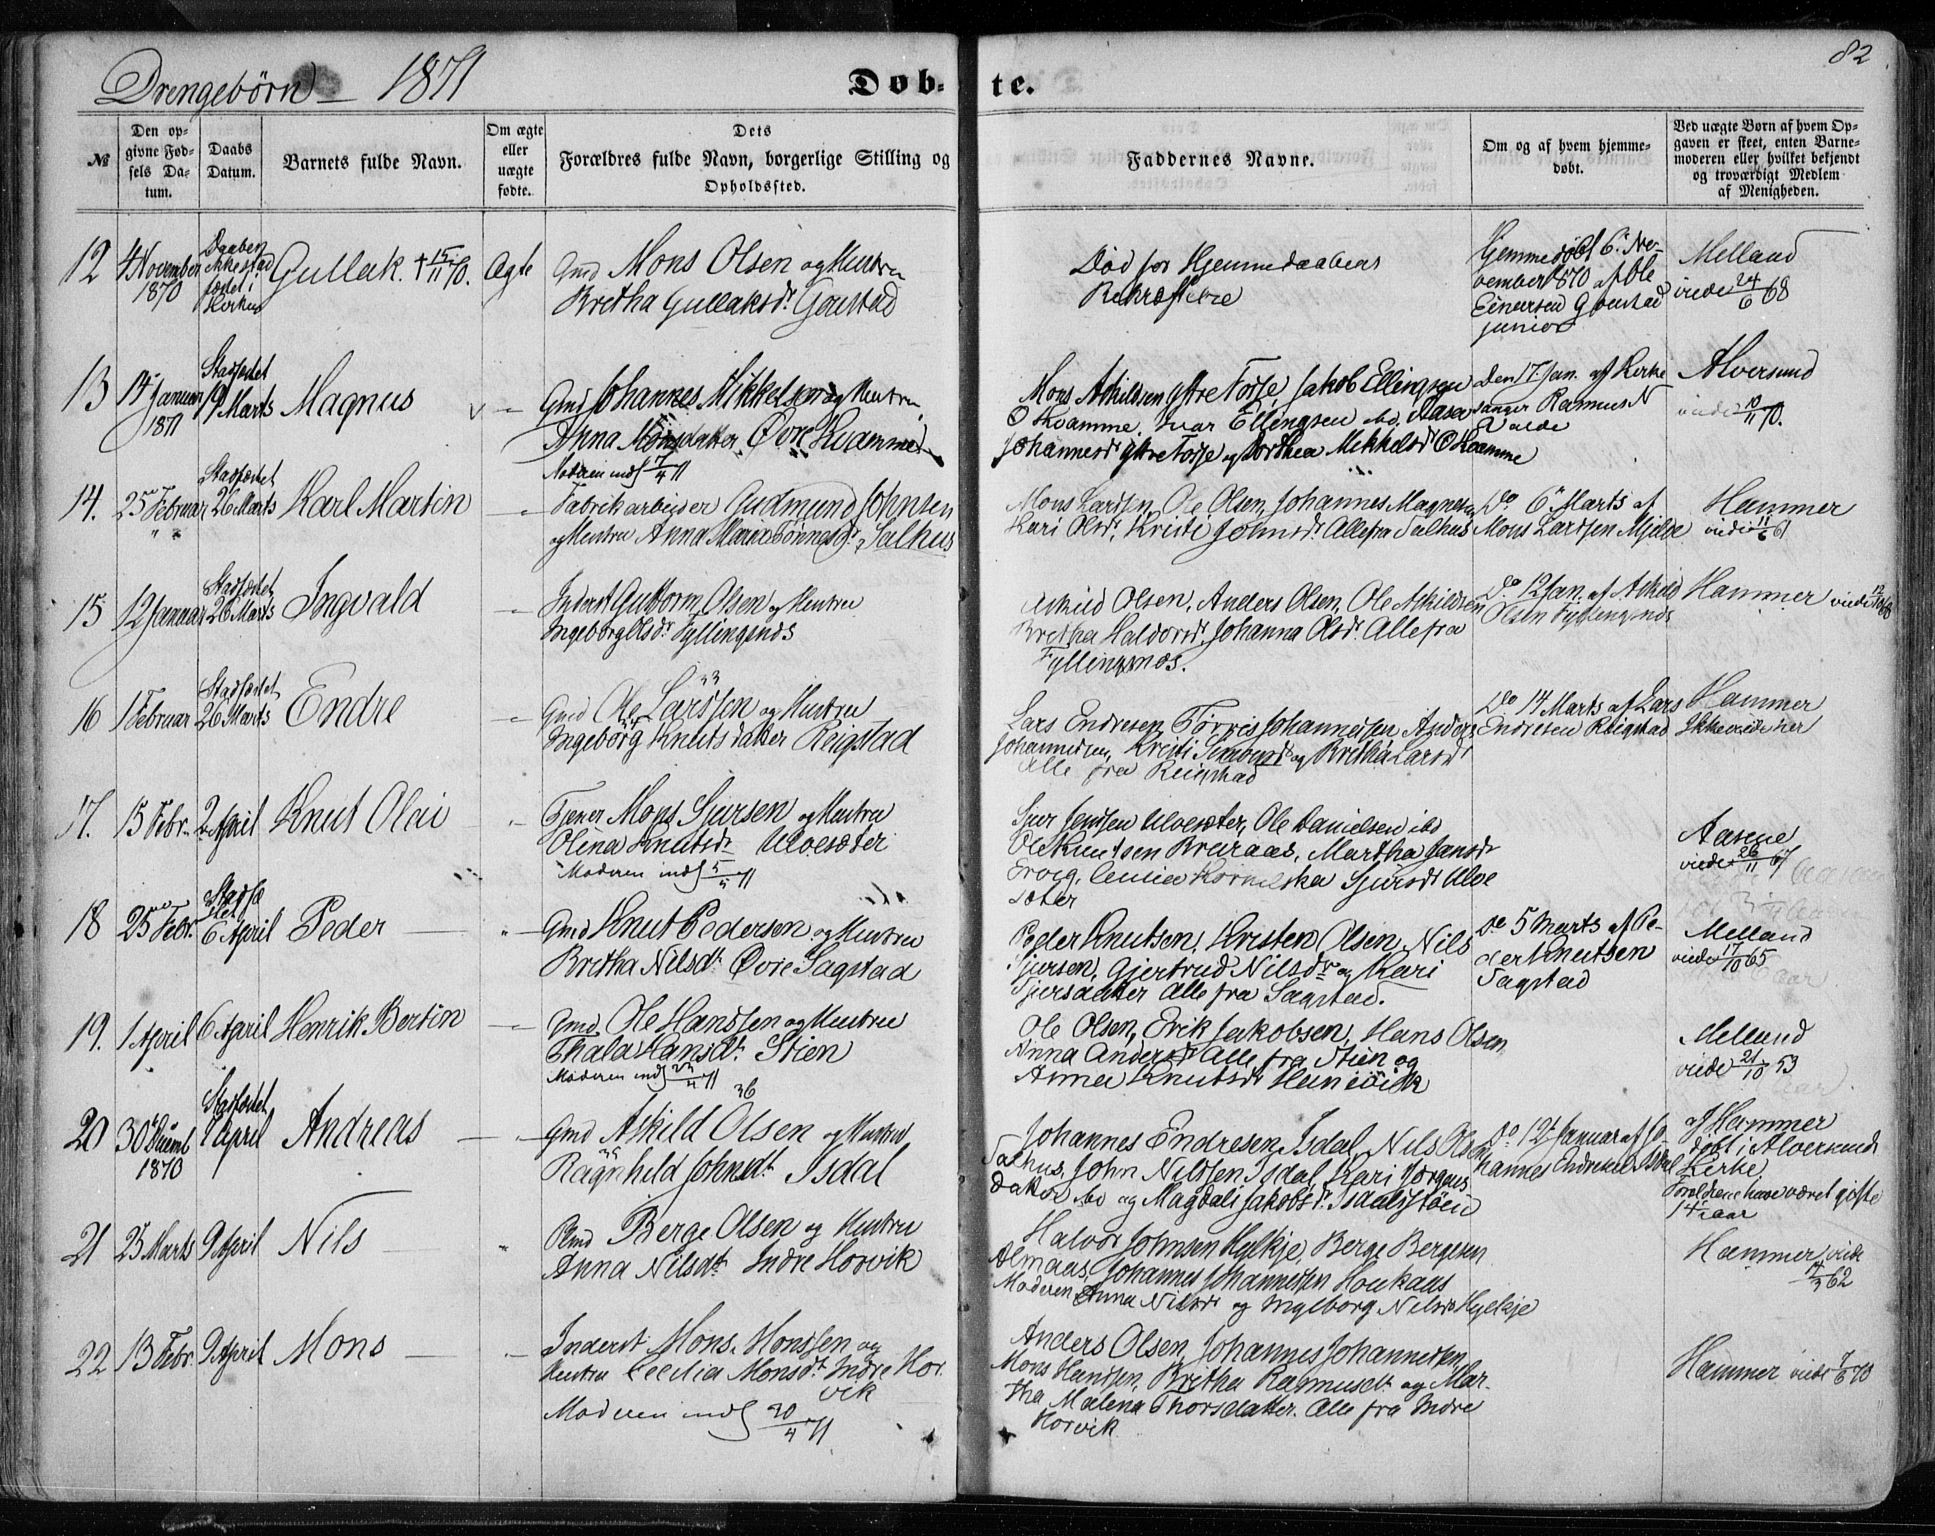 82
Drengebörn 1871
Döb-
te.
№
Den op-
givne Fød-
sels Da-
tum.
Daabs
Datum.
Barnets fulde Navn.
Om ægte
eller
uægte
fødte.
Dets
Forældres fulde Navn, borgerlige Stilling og
Opholdssted.
Faddernes Navne.
Om og af hvem hjemme-
døbt.
Ved uægte Børn af hvem Op-
gaven er skeet, enten Barne-
moderen eller hvilket bekjendt
og troværdigt Medlem
af Menigheden.
12
4 November
1870
Daaben
ikke stad
fæstet i
Kirken
Gullak. † 15/11 70.
Ægte
Gmd Mons Olsen og Hustru
Bretha Gullaksdr Gaustad
Död for Hjemmedaabens
Bekræftelse
Hjemmedöbt 6 No-
vember 1870 af Ole
Einersen Gaustad
junior
Melland
viede 24/6 68
13
14 Januar
1871
Stadfæstet
19 Marts
Magnus
Gmd Johannes Mikkelsen og Hustru
Anna Monsdatter Øvre Kvamme
Moderen inds 17/4 71
Mons Askildsen, ytre Tosse, Jakob Ellingsen
Ø Kvamme, Ivar Ellingsen ibd, Aasa
Johannesdr ytre Tosse og Dorthea Mikkelsdr Ø Kvamme
Den 17. Jan. af Kirke
sanger Rasmus N
Valde
Alversund
viede 10/11 70.
14.
25 Februar
Stadfæstet
26 Marts
Karl Martin
Fabrikarbeider Gudmund Johnsen
og Hustru Anna Maria Tönnesdr. Salhus
Mons Larssen, Ole Olsen, Johannes Magnesen
Kari Olsdr, Kristi Johnsdr. Alle fra Salhus
Do 6 Marts af
Mons Larssen Mjelde
Hammer
viede 11/6 61
15
12 Januar
Stadfæstet
26 Marts
Ingvald
Inderst Guttorm Olsen og Hustru
Ingeborg Olsdr Fyllingsnæs
Askild Olsen, Anders Olsen, Ole Askildsen
Bretha Haldorsdr, Johanna Olsdr Alle fra
Fyllingsnæs.
Do 12 Jan. af Askild
Olsen Fyllingsnæs
Hammer viede
16
1 Februar
Stadfæstet
26 Marts
Endre
Gmd Ole Larssen og Hustru
Ingeborg Knutsdatter Reigstad
Lars Endresen, Törris Johannessen, Anders
Johannessen, Kristi og Bretha Larsdr
Alle fra Reigstad
Do 14 Marts af Lars
Endresen Reigstad
Hammer
Ikke viede her
17.
15 Febr.
2 April
Knut Olai
Tjener Mons Sjursen og Hustru
Olina Knutsdr Ulvesæter
Moderen inds 5/5 71
Sjur Jenssen Ulvesæter, Ole Danielsen ibd
Ole Knutsen Breiraas, Martha Jansdr
Sjursdr Ulve
sæter
Aasene
viede 26/11 67
18
25 Febr.
Stadfæ
stet
6 April
Peder
Gmd Knut Pedersen og Hustru
Bretha Nilsdr. Øvre Sagstad
Peder Knutsen, Kristen Olsen, Nils
Sjursen, Gjertrud Nilsdr og Kari
Sjursdatter Alle fra Sagstad.
Do 5 Marts af Pe-
der Knutsen
Sagstad
Melland
viede 17/10 65
19.
1 April
6 April
Henrik Bertin
Gmd. Ole Hanssen og Hustru
Thala Hansdr. Stien
Moderen inds 23/4 71
Ole Olsen, Erik Jakobsen, Hans Olsen
Anna Andersdr Alle fra Stien og
Anna Knutsdr
Melland
viede 21/10 53
20
30 Decemb
1870
Stadfæstet
9 April
Andreas
36
Gmd Askild Olsen og Hustru
Ragnhild Johnsdr Isdal
Johannes Endresen Isdal, Nils Olsen
Salhus, John Nilssen Isdal, Kari Jörgens-
datter ibd og Magdali Jakobsdr. Isdalstöen
Do 12 Januar af Jo-
hannes Endresen Isdal
af Hammer
döbt i Alversund
Kirke
Forældrene have været gifte
14 aar
21
25 Marts
9 April
Nils
Gmd Berge Olsen og Hustru
Anna Nilsdr. Indre Horvik
Halvor Johnsen Hylkje, Berge Bergesen
Almaas, Johannes Johannessen Haukaas
Moderen Anna Nilsdr og Ingeborg Nilsdr Hylkje
Hammer, viede
17/3 62
22
13 Febr.
9 April
Mons
Inderst Mons Monssen og
Hustru Cecilia Monsdr. Indre Hor
vik
Moderen inds 30/4 71
Anders Olsen, Johannes Johannessen,
Mons Hanssen, Bretha Rasmusdr og Mar-
tha Malena Thorsdatter. Alle fra Indre
Horvik
Hammer viede 7/6 70